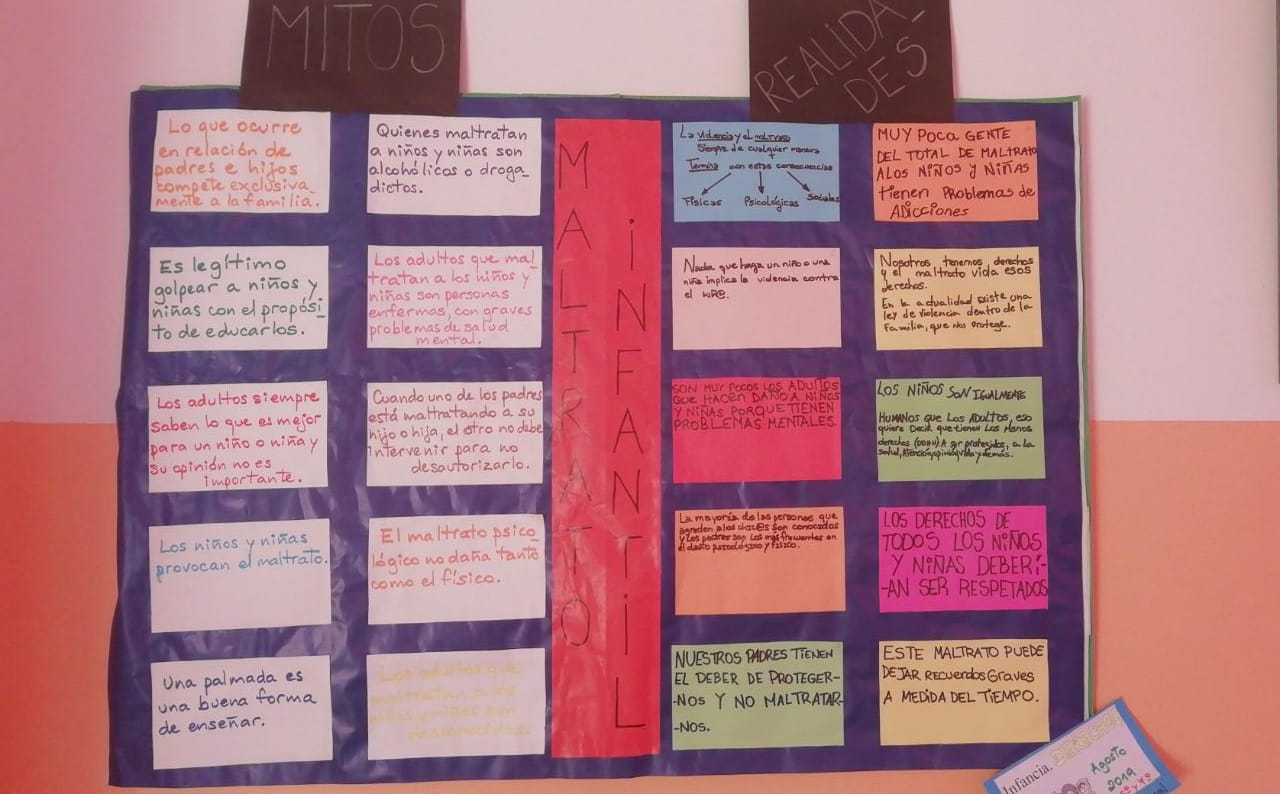 MITOS
REALIDA-
DES
Lo que ocurre
en relación de
padres e hijos
compete exclusiva_
mente a la familia.
Quienes maltratan
a niños y niñas son
alcohólicos o droga_
dictos.
Es legítimo
golpear a niños y
niñas con el propósi_
to de educarlos.
Los adultos que mal_
tratan a los niños y
niñas son personas
enfermas, con graves
problemas de salud
mental.
Los adultos siempre
saben lo que es mejor
para un niño o niña y
su opinión no es
importante.
Cuando uno de los padres
está maltratando a su
hijo o hija, el otro no debe
intervenir para no
desautorizarlo.
Los niños y niñas
provocan el maltrato.
El maltrato psico_
lógico no daña tanto
como el físico.
Una palmada es
una buena forma
de enseñar.
Los adultos que
maltratan a los
niños y niñas son
desconocidos.
MALTRATO
iNFANTiL
La violencia y el maltrato
Siempre de cualquier manera
Termina con estas consecuencias
Físicas Psicológicas Sociales
MUY POCA GENTE
DEL TOTAL DE MALTRATO
A LOS NIÑOS Y NIÑAS
tienen PROBlemas de
ADICCIONES
Nada que haga un niño o una
niña implica la violencia contra
el niñ@.
Nosotros tenemos derechos
y el maltrato viola esos
derechos.
En la actualidad existe una
ley de violencia dentro de la
Familia, que nos protege.
SON MUY POCOS LOS ADULTOS
QUE HACEN DAÑO A NIÑOS
Y NIÑAS PORQUE TIENEN
PROBLEMAS MENTALES.
LOS NIÑOS SON IGUALMENTE
HUMANOS que Los ADULTOS, eso
quiere Decir que tienen Los Mismos
derechos (DDHH) A ser protegidos, a la
salud, Atención, opinión, vida y demás.
La mayoría de las personas que
agreden a los chic@s son conocidos
y los padres son los más frecuentes en
el daño psicológico y físico.
LOS DERECHOS DE
TODOS LOS NiÑOS
Y NiÑAS DEBERí-
-AN SER RESPETADOS
NUESTROS PADRES TIENEN
EL DEBER DE PROTEGER-
-NOS Y NO MALTRATAR-
-NOS.
ESTE MALTRATO PUEDE
DEJAR recuerdos Graves
A MEDIDA DEL TIEMPO.
Infancia. DERECHOS
Agosto
2019